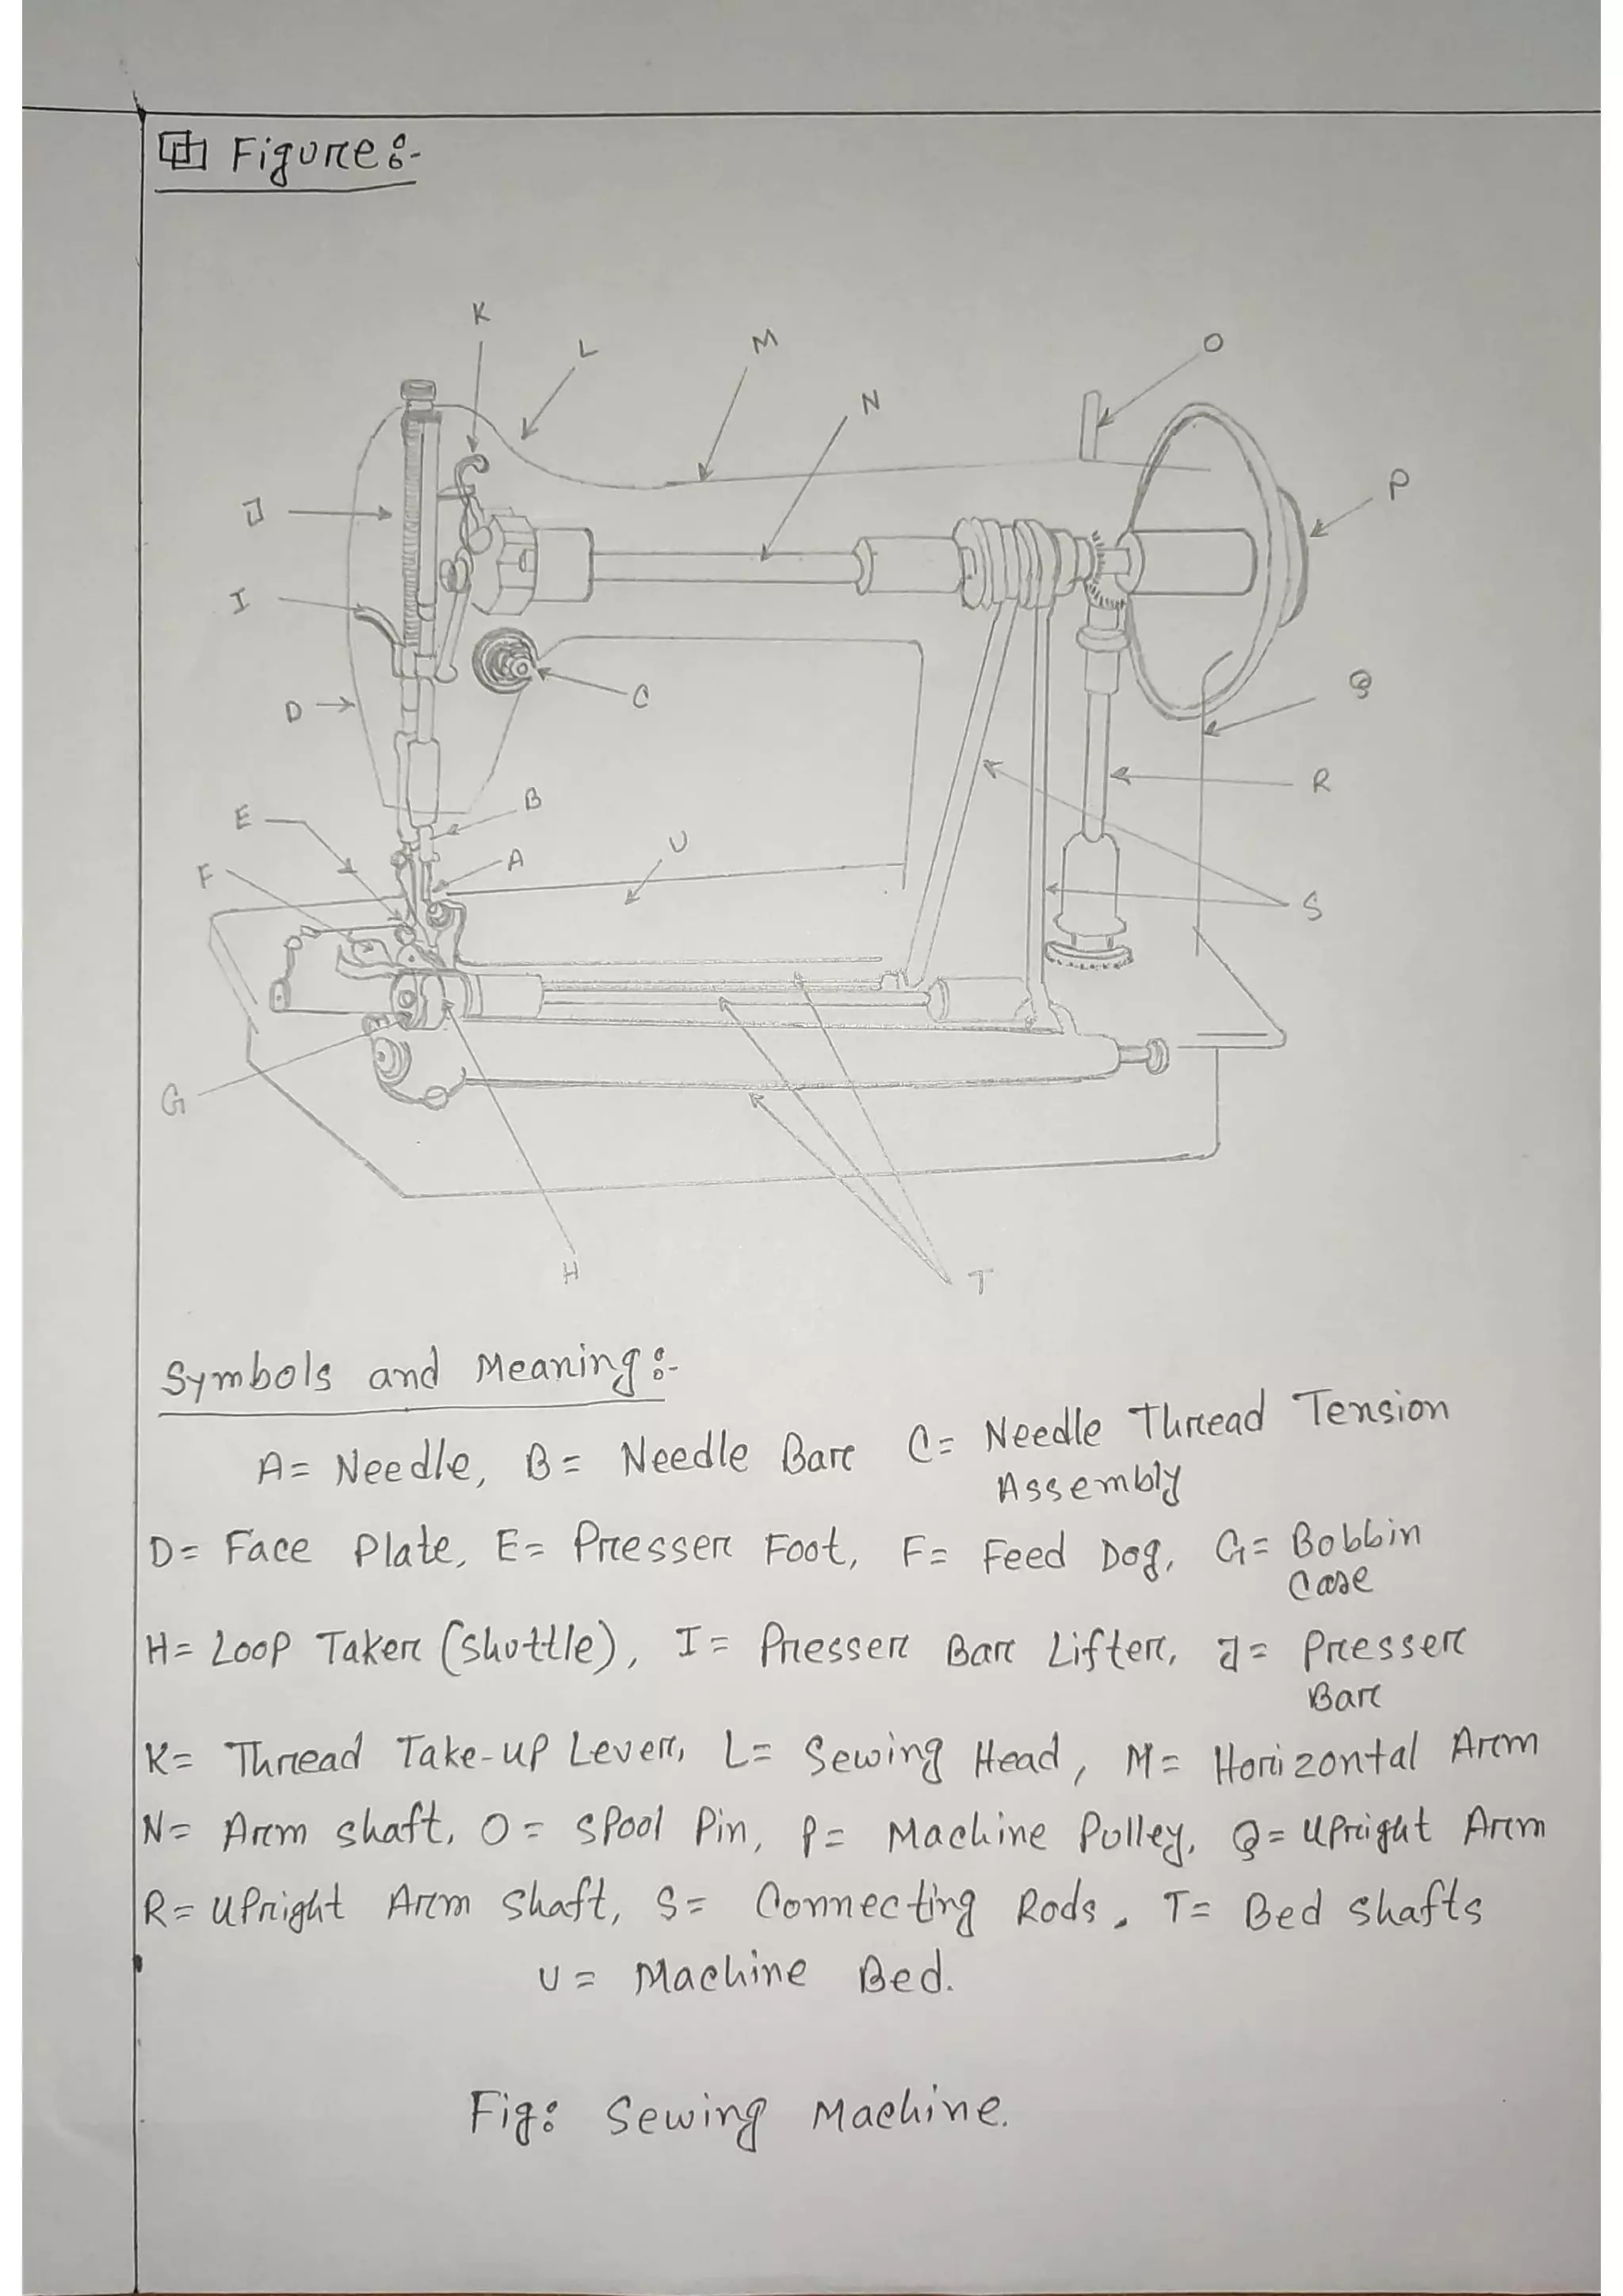 Figure:-
K
L
M
O
N
P
J
I
C
D
Q
R
B
E
U
A
F
S
G
H
T
Symbols and Meaning:-
A= Needle, B= Needle Bar C= Needle Thread Tension
Assembly
D= Face Plate, E= Presser Foot, F= Feed Dog, G= Bobbin
Case
H= Loop Taker (Shuttle), I= Presser Bar Lifter, J= Presser
Bar
K= Thread Take-up Lever, L= Sewing Head, M= Horizontal Arm
N= Arm shaft, O= Spool Pin, P= Machine Pulley, Q= Upright Arm
R= Upright Arm Shaft, S= Connecting Rods, T= Bed shafts
U= Machine Bed.
Fig: Sewing Machine.